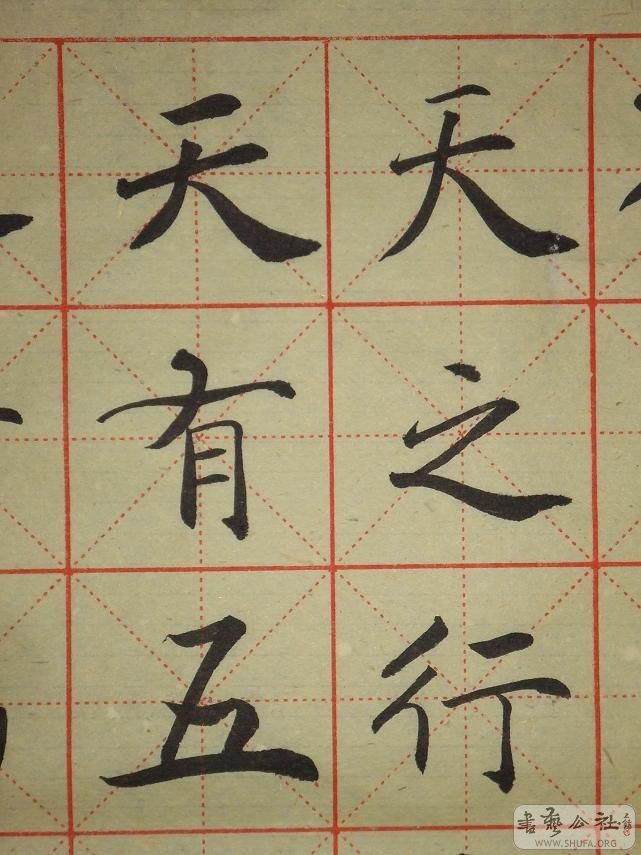 天之行
天有五
書藝公社
WWW.SHUFA.ORG